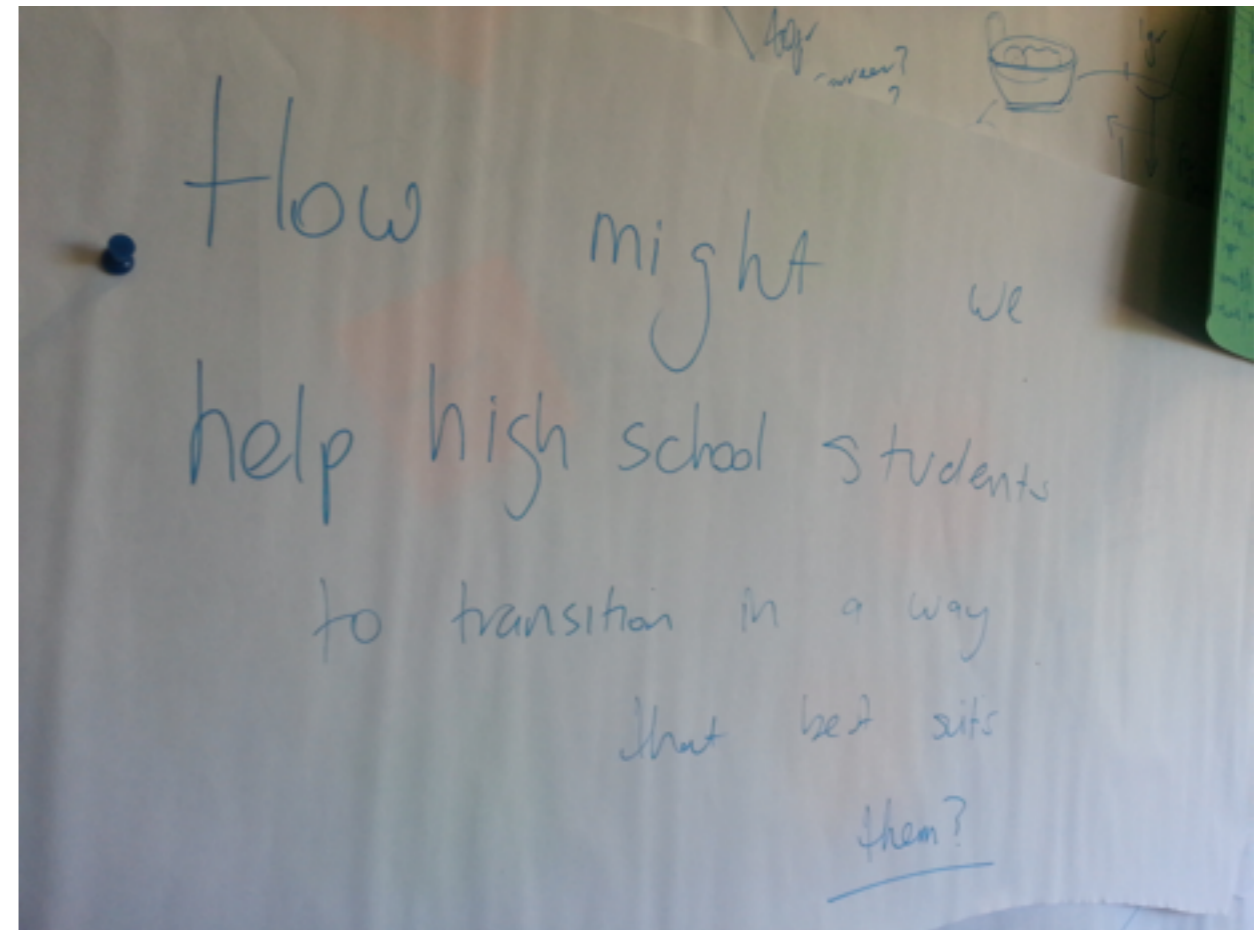 How might we
help high school students
to transition in a way
that best suits
them?